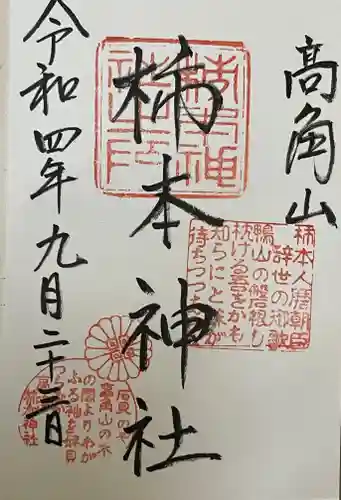 高角山
柿本神社
令和四年九月二十三日
柿本人麿朝臣
辞世の御歌
鴨山の磐根し
枕ける吾をかも
知らにと妹が
待ちつつあらむ
石見のや
高角山の木
の間よりわが
ふる袖を妹見
つらむか
柿本神社